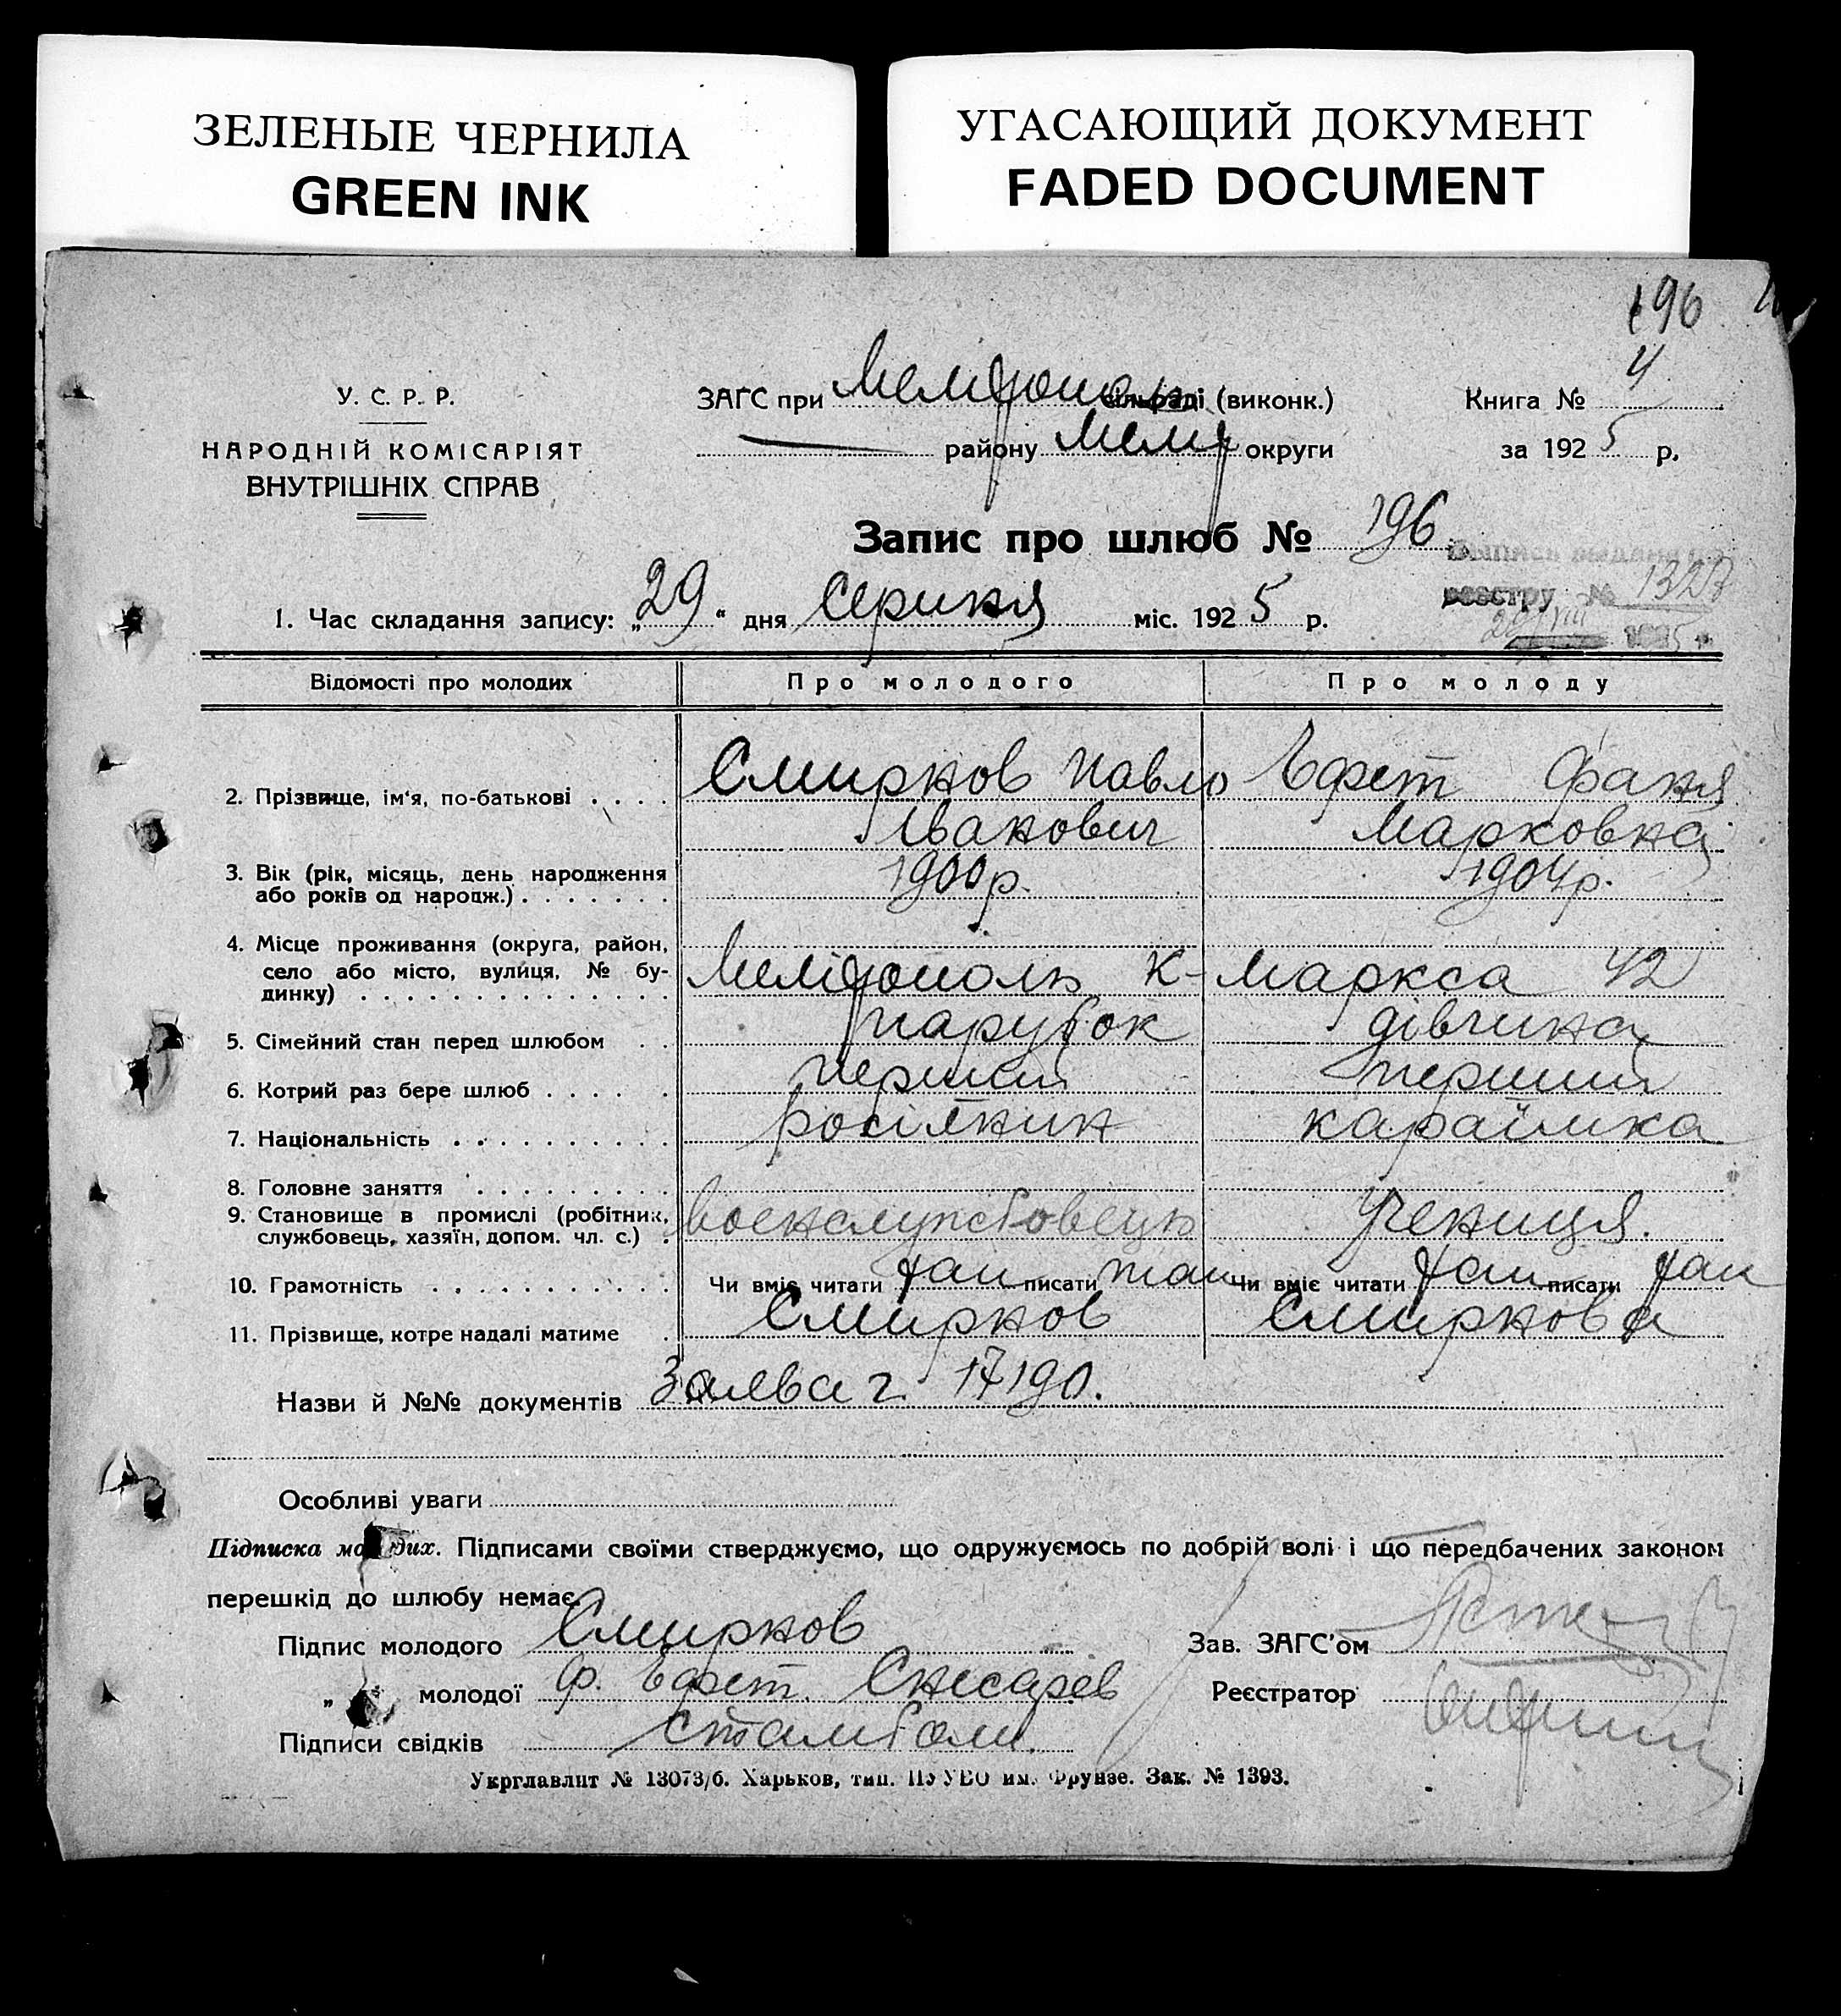 ЗЕЛЕНЫЕ ЧЕРНИЛА
GREEN INK
УГАСАЮЩИЙ ДОКУМЕНТ
FADED DOCUMENT
196
У. С. Р. Р.
НАРОДНІЙ КОМІСАРІЯТ
ВНУТРІШНІХ СПРАВ
ЗАГС при Мелітопол. сільраді (виконк.)
району Меліт округи
Книга № 4
за 1925 р.
Запис про шлюб № 196
реєстру № 1327
29/VIII 1925 р.
1. Час складання запису: „29“ дня Серпня міс. 1925 р.
Відомості про молодих Про молодого Про молоду
2. Прізвище, ім'я, по-батькові . . . . Смирнов Павло Ефет Фаня
Іванович Марковна
3. Вік (рік, місяць, день народження
або років од народж.) . . . . . . . 1900 р. 1904 р.
4. Місце проживання (округа, район,
село або місто, вулиця, № бу-
динку) . . . . . . . . . . . . . . Мелітополь К-Маркса 42
5. Сімейний стан перед шлюбом . . парубок дівчина
6. Котрий раз бере шлюб . . . . . перший перший
7. Національність . . . . . . . . . . росіянин караїмка
8. Головне заняття . . . . . . . . .
9. Становище в промислі (робітник,
службовець, хазяїн, допом. чл. с.) . военслужбовець Учениця.
10. Грамотність . . . . . . . . . . . Чи вміє читати так писати так Чи вміє читати так писати так
11. Прізвище, котре надалі матиме . Смирнов Смирнова
Назви й №№ документів Заява ч. 17190.
Особливі уваги
Підписка молодих. Підписами своїми стверджуємо, що одружуємось по добрій волі і що передбачених законом
перешкід до шлюбу немає.
Підпис молодого Смирнов
Зав. ЗАГС'ом
„ молодої Ф. Ефет. Снесарев
Реєстратор
Підписи свідків Стамболи.
Укрглавлит № 13073/б. Харьков, тип. ПУ УВО им. Фрунзе. Зак. № 1393.